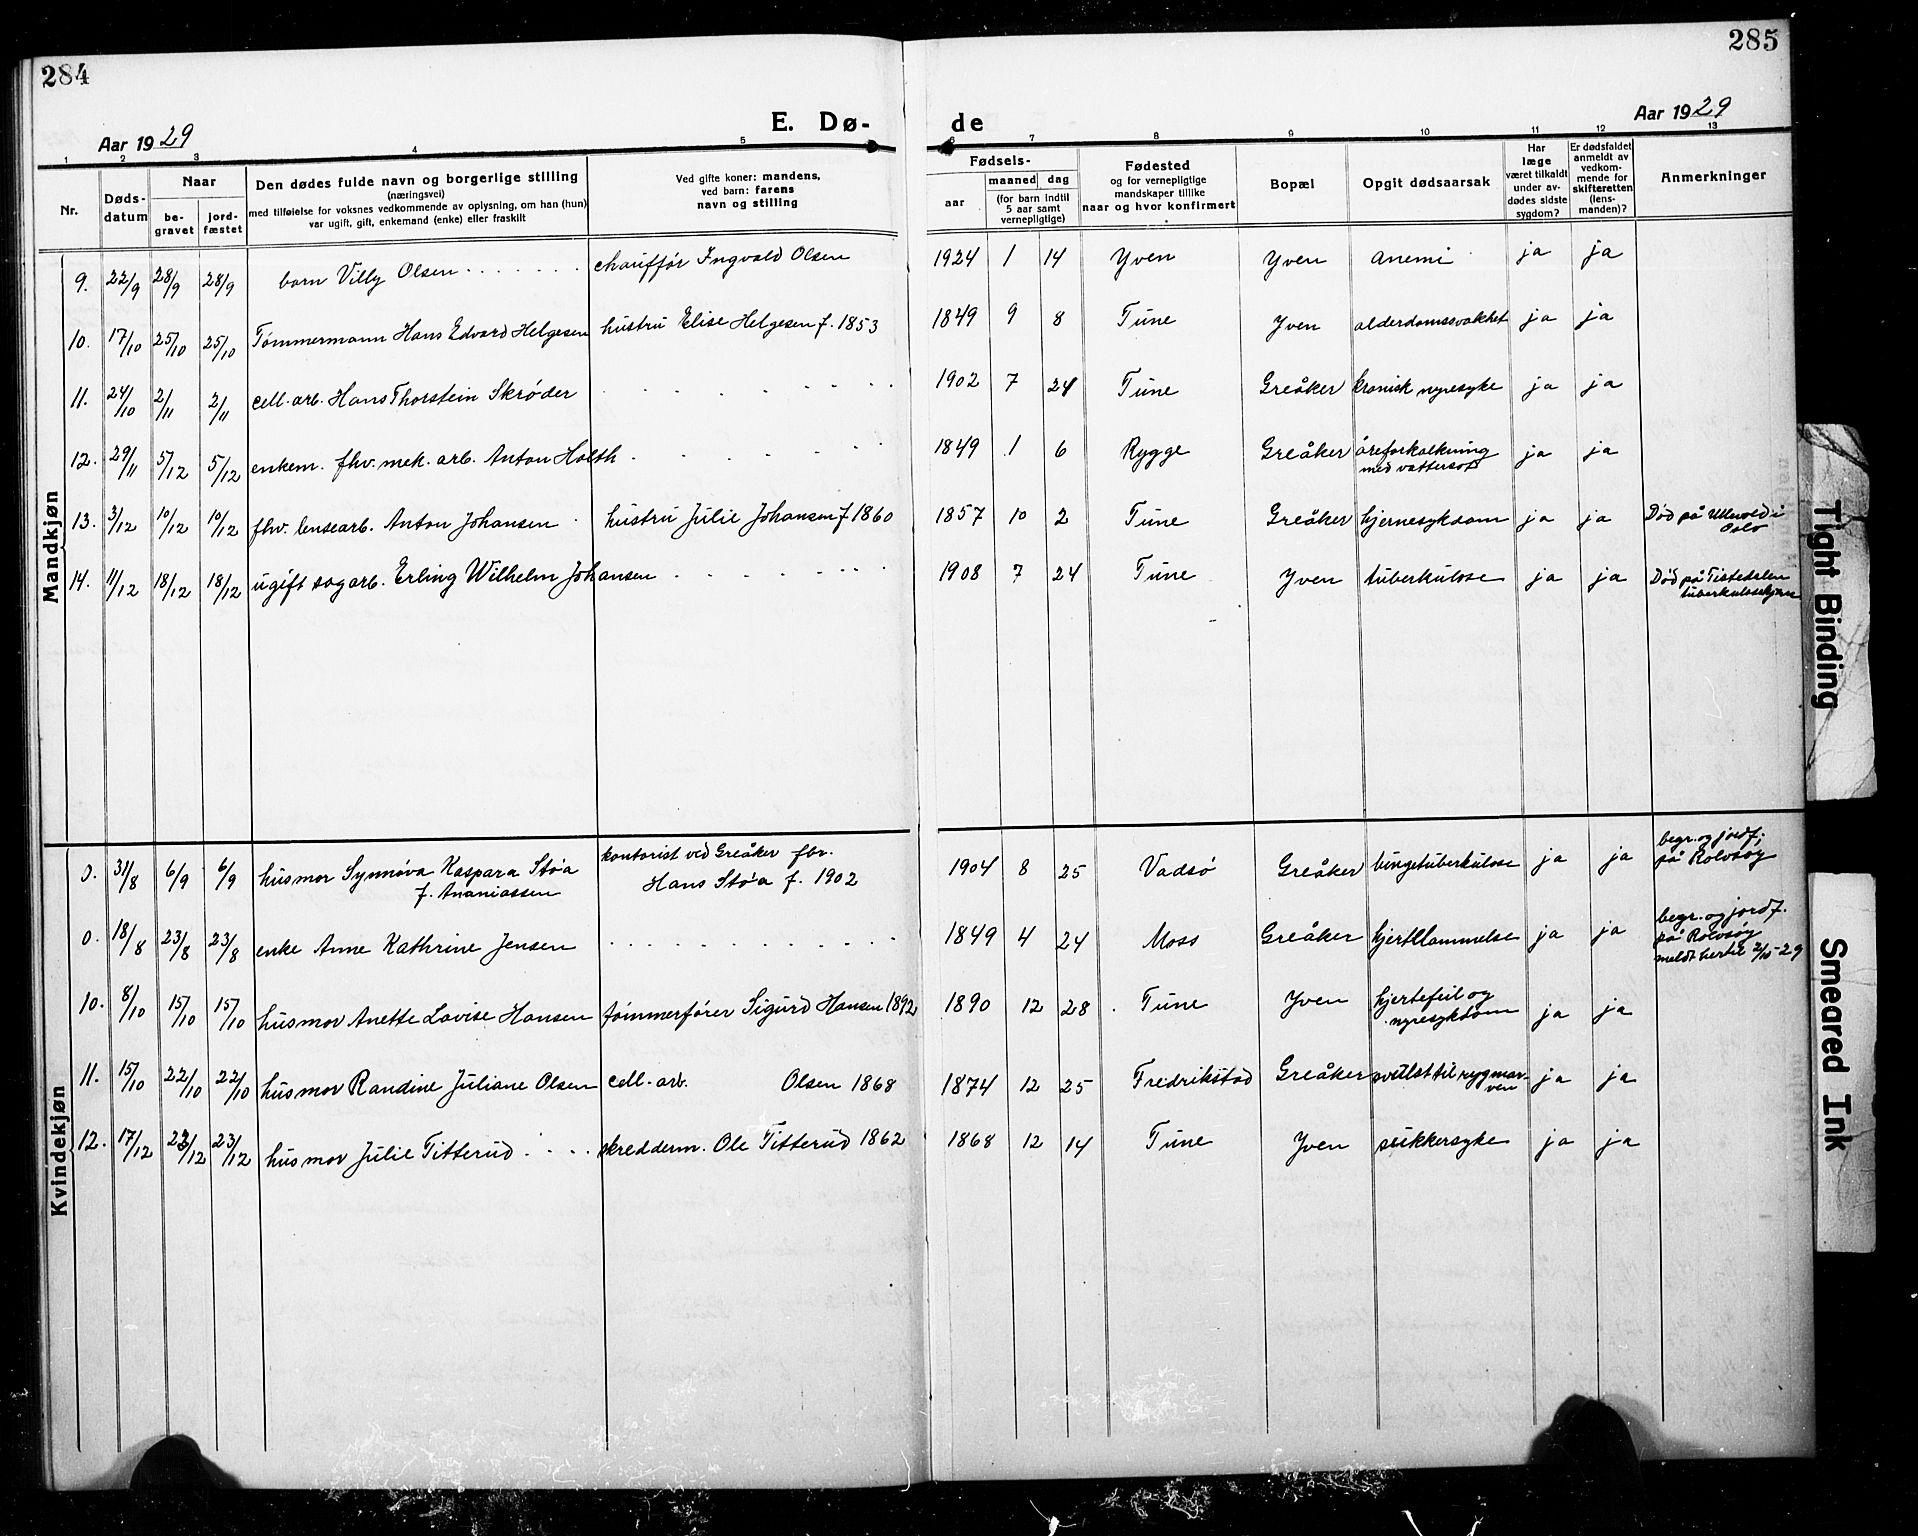 284
285
Aar 1929
E. Dø-
de
Aar 1929
1 2 3 4 5 6 7 8 9 10 11 12 13
Nr.
Døds-
datum
Naar
be-
gravet
jord-
fæstet
Den dødes fulde navn og borgerlige stilling
(næringsvei)
med tilføielse for voksnes vedkommende av oplysning, om han (hun)
var ugift, gift, enkemand (enke) eller fraskilt
Ved gifte koner: mandens,
ved barn: farens
navn og stilling
Fødsels-
aar
maaned
dag
(for barn indtil
5 aar samt
vernepligtige)
Fødested
og for vernepligtige
mandskaper tillike
naar og hvor konfirmert
Bopæl
Opgit dødsaarsak
Har
læge
været tilkaldt
under av-
dødes sidste
sygdom?
Er dødsfaldet
anmeldt av
vedkom-
mende for
skifteretten
(lens-
manden)?
Anmerkninger
Mandkjøn
9. 22/9 28/9 28/9 barn Villy Olsen . . . . . . . chauffór Ingvald Olsen 1924 1 14 Yven Yven anemi ja ja
10. 17/10 25/10 25/10 Tømmermann Hans Edvard Helgesen hustru Elise Helgesen f. 1853 1849 9 8 Tune Yven alderdomssvakhet ja ja
11. 24/10 2/11 2/11 cell. arb. Hans Thorstein Skrøder . . . . . . . 1902 7 24 Tune Greåker kronisk nyresyke ja ja
12. 29/11 5/12 5/12 enkem. fhv. mek. arb. Anton Holth . . . . . . 1849 1 6 Rygge Greåker åreforkalkning ja ja
med vattersot
13. 3/12 10/12 10/12 fhv. lensearb. Anton Johansen . hustru Julie Johansen f 1860 1857 10 2 Tune Greåker hjernesykdom ja ja Død på Ullevold i
Oslo
14. 11/12 18/12 18/12 ugift sagarb. Erling Wilhelm Johansen . . . . . . . 1908 7 24 Tune Yven tuberkulose ja ja Død på Tistedalen
tuberkulosehjem
Kvindekjøn
0. 31/8 6/9 6/9 husmor Synnøva Kaspara Støa kontorist ved Greåker fbr. 1904 8 25 Vadsø Greåker lungetuberkulose ja ja begr. og jordf.
f. Ananiassen Hans Støa f. 1902 på Rolvsøy
0. 18/8 23/8 23/8 enke Anne Kathrine Jensen . . . . . . . . . . . . 1849 4 24 Moss Greåker hjertelammelse ja ja begr. og jordf.
på Rolvsøy
meldt hertil 2/10-29
10. 8/10 15/10 15/10 husmor Anette Lovise Hansen tømmerfører Sigurd Hansen 1892 1890 12 28 Tune Yven hjertefeil og ja ja
nyresykdom
11. 15/10 22/10 22/10 husmor Randine Juliane Olsen cell. arb. Olsen 1868 1874 12 25 Fredrikstad Greåker svulst til rygmar- ja ja
ven
12. 17/12 23/12 23/12 husmor Julie Titterud . . . . skredderm. Ole Titterud 1862 1868 12 14 Tune Yven sukkersyke ja ja
Tight Binding
Smeared Ink